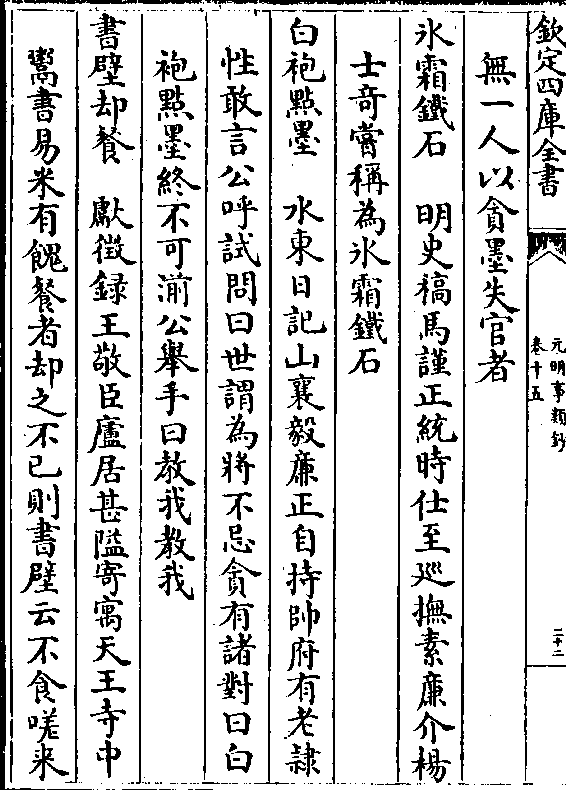 欽定四庫全書
元明事類鈔
卷十五
二十二
無一人以貪墨失官者
氷霜鐵石　明史稿馬謹正統時仕至廵撫素廉介楊
士竒嘗稱為氷霜鐵石
白袍㸃墨　水東日記山襄毅廉正自持帥府有老隷
性敢言公呼試問曰世謂為將不忌貪有諸對曰白
袍㸃墨終不可湔公舉手曰教我教我
書壁却餐　獻徵録王敬臣廬居甚隘寄寓天王寺中
鬻書易米有餽餐者却之不已則書壁云不食嗟来